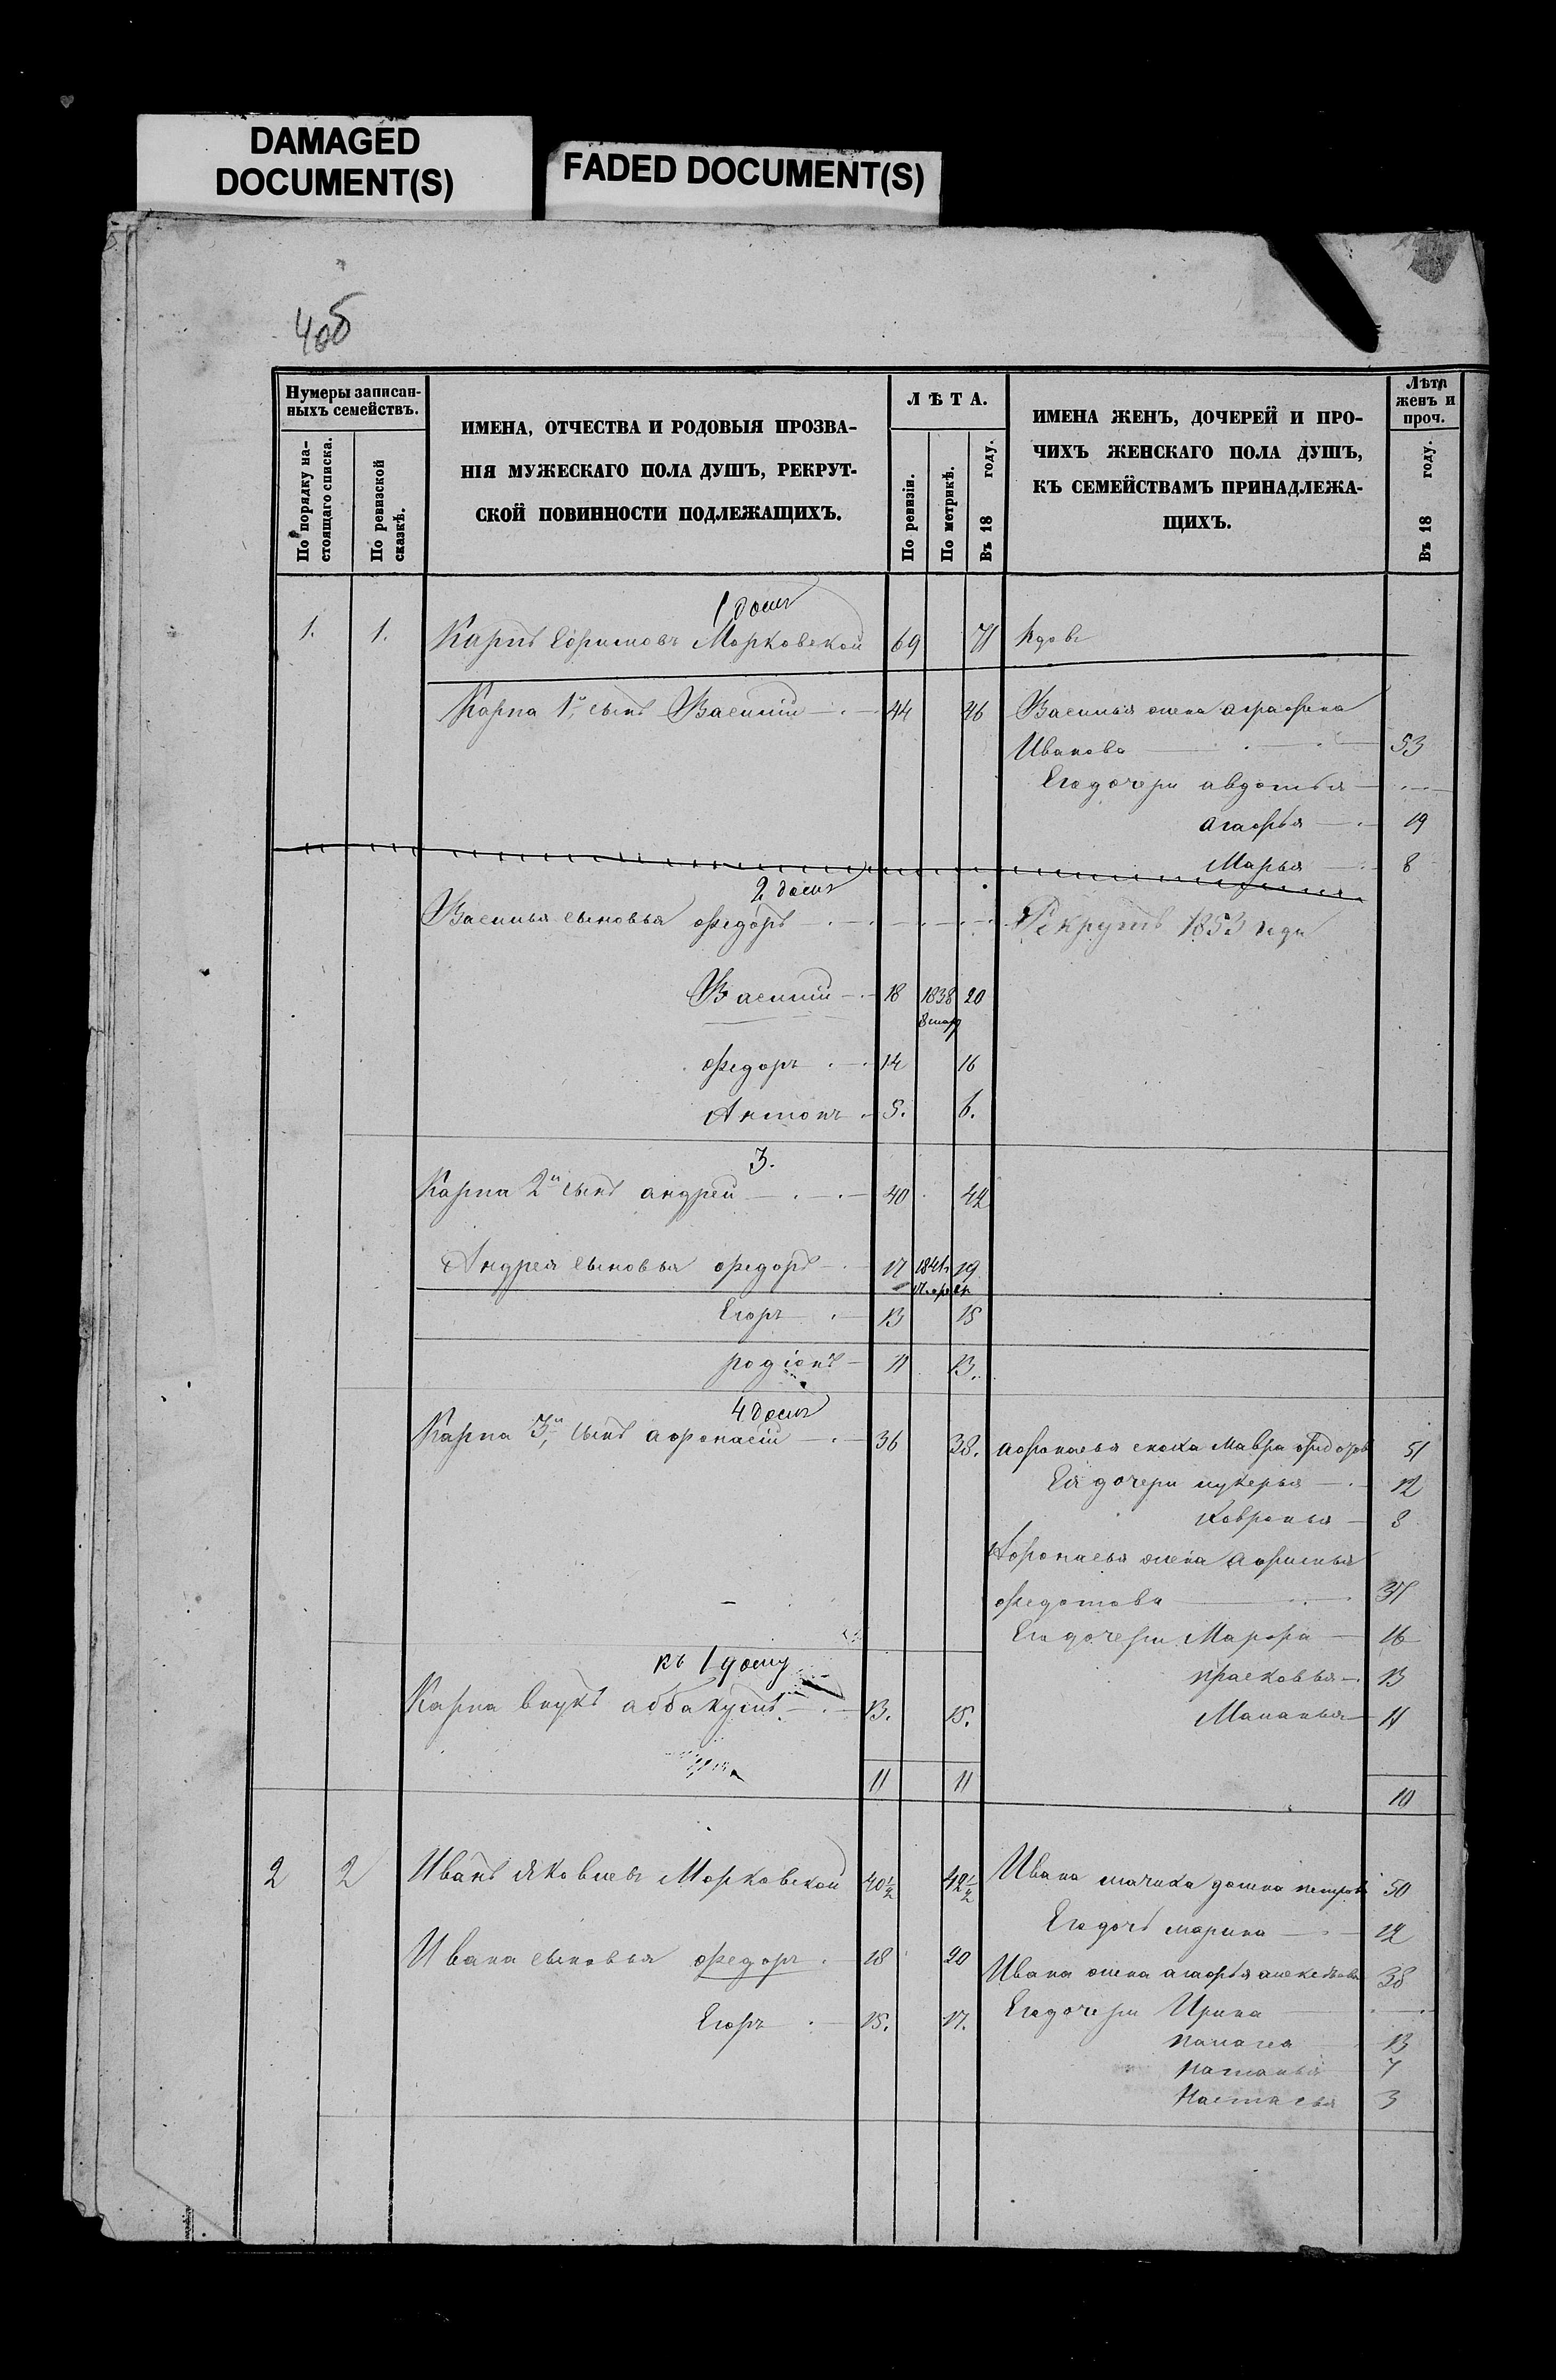 DAMAGED
DOCUMENT(S)
FADED DOCUMENT(S)
406
Нумеры записан-
ныхъ семействъ.
По порядку на-
стоящаго списка.
По ревизской
сказкѣ.
ИМЕНА, ОТЧЕСТВА И РОДОВЫЯ ПРОЗВА-
НІЯ МУЖЕСКАГО ПОЛА ДУШЪ, РЕКРУТ-
СКОЙ ПОВИННОСТИ ПОДЛЕЖАЩИХЪ.
ЛѢТА.
По ревизіи.
По метрикѣ.
Въ 18 году.
ИМЕНА ЖЕНЪ, ДОЧЕРЕЙ И ПРО-
ЧИХЪ ЖЕНСКАГО ПОЛА ДУШЪ,
КЪ СЕМЕЙСТВАМЪ ПРИНАДЛЕЖА-
ЩИХЪ.
Лѣта
женъ и
проч.
Въ 18 году.
1 домъ
1. 1. Карпъ Ефимовъ Морковской 69 71 вдовъ
Карпа 1й сынъ Василий 44 46 Василья жена аграфена
Иванова 53
Его дочери авдотья
агафья 19
Марья 8
2 домъ
Василья сыновья федоръ Рекрутъ 1853 года
Василий 18 1838 20
8 мар
федоръ 14 16
Антонъ 5. 6.
3.
Карпа 2й сынъ андрей 40 42
Андрея сыновья федоръ 17 1841 19
17 фев
Егоръ 13 15
родіонъ 11 13.
4 домъ
Карпа 3й сынъ афонасій 36 38. афонасья сноха Мавра федотов 51
Ея дочери лукерья 12
Хавронья 8
Афонасья жена афимья
федотова 37
Его дочери Марфа 16
прасковья 13
Маланья 11
къ 1 дому
Карпа внукъ аббакумъ 13. 15.
11 11 10
2 2 Иванъ яковлевъ Морковской 40½ 42½ Ивана мачиха домна петрова 50
Его дочь марина 12
Ивана сыновья федоръ 18 20
Ивана жена агафья алексѣева 38
Егоръ 15. 17. Его дочери Ирина
палагея 13
наталья 7
Настасья 3